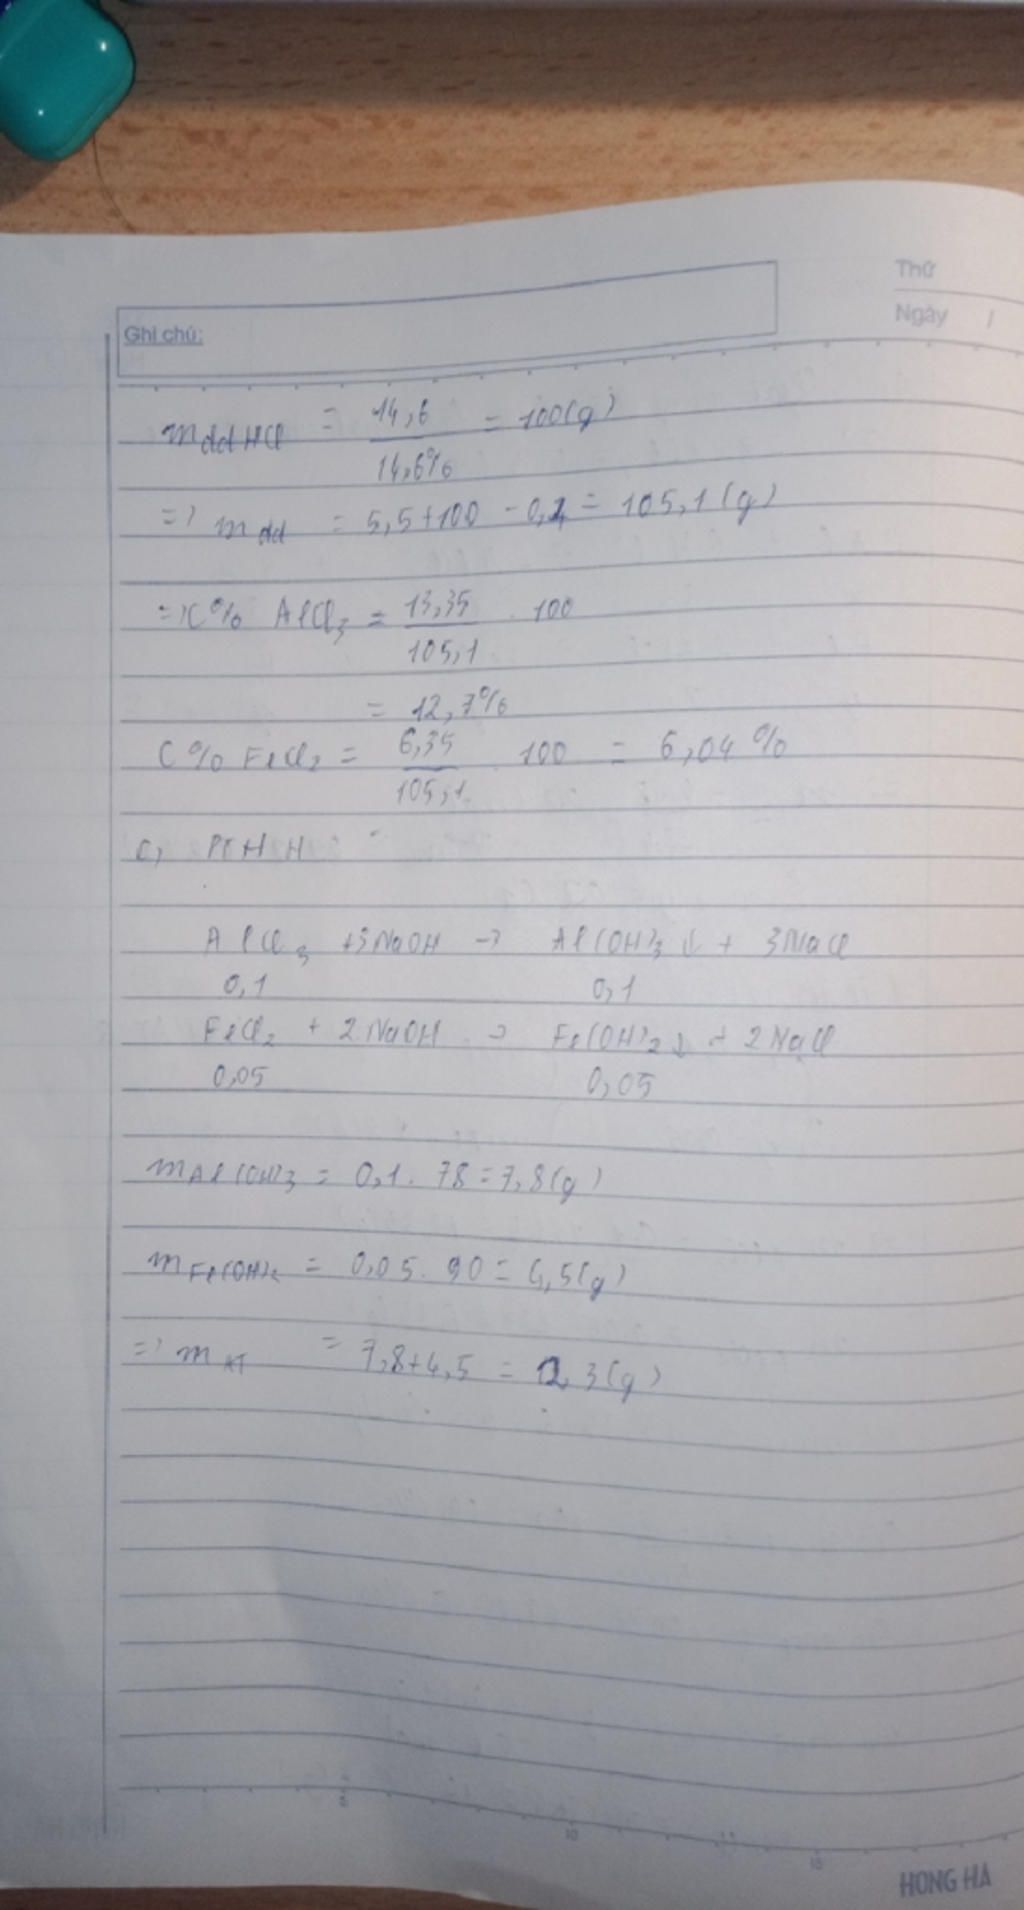 Thứ
Ngày /
Ghi chú:
mddHCl = 14,6 / 14,6% = 100(g)
=> mdd = 5,5+100 - 0,4 = 105,1(g)
=> C% AlCl3 = 13,35 / 105,1 . 100
= 12,7%
C% FeCl2 = 6,35 / 105,1 . 100 = 6,04%
c, PTHH
AlCl3 + 3NaOH -> Al(OH)3 ↓ + 3NaCl
0,1 0,1
FeCl2 + 2NaOH -> Fe(OH)2 ↓ + 2NaCl
0,05 0,05
mAl(OH)3 = 0,1 . 78 = 7,8(g)
mFe(OH)2 = 0,05 . 90 = 4,5(g)
=> mKT = 7,8+4,5 = 12,3(g)
5
10
15
HONG HA